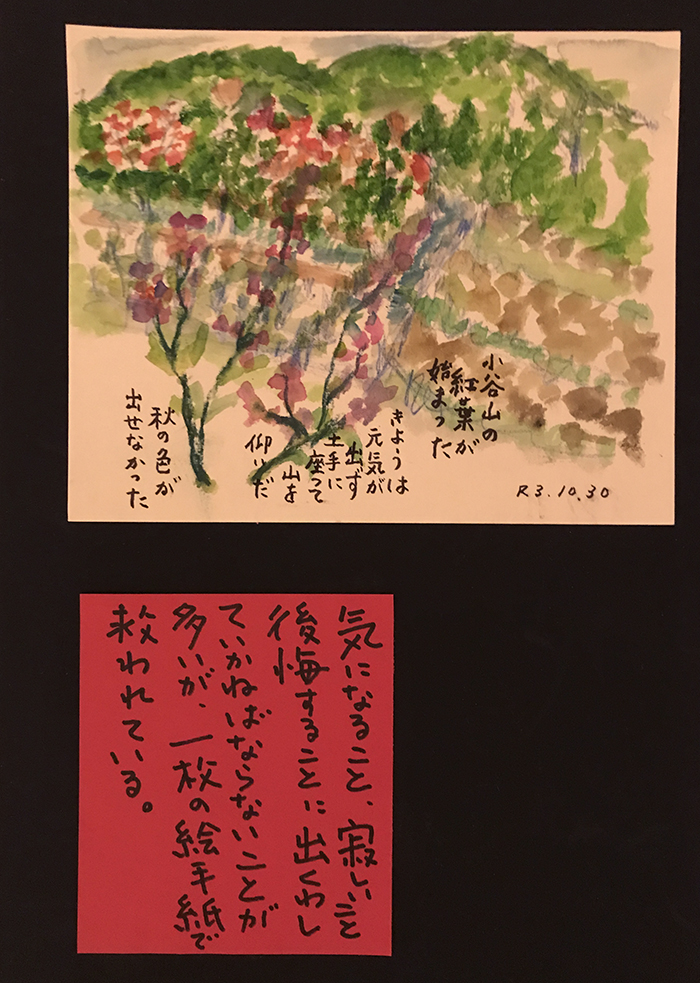 小谷山の
紅葉が
始まった
きようは
元気が
出ず
土手に
座って
山を
仰いだ
秋の色が
出せなかった
R3.10.30
気になること、寂しいこと
後悔することに出くわし
ていかねばならないことが
多いが、一枚の絵手紙で
救われている。